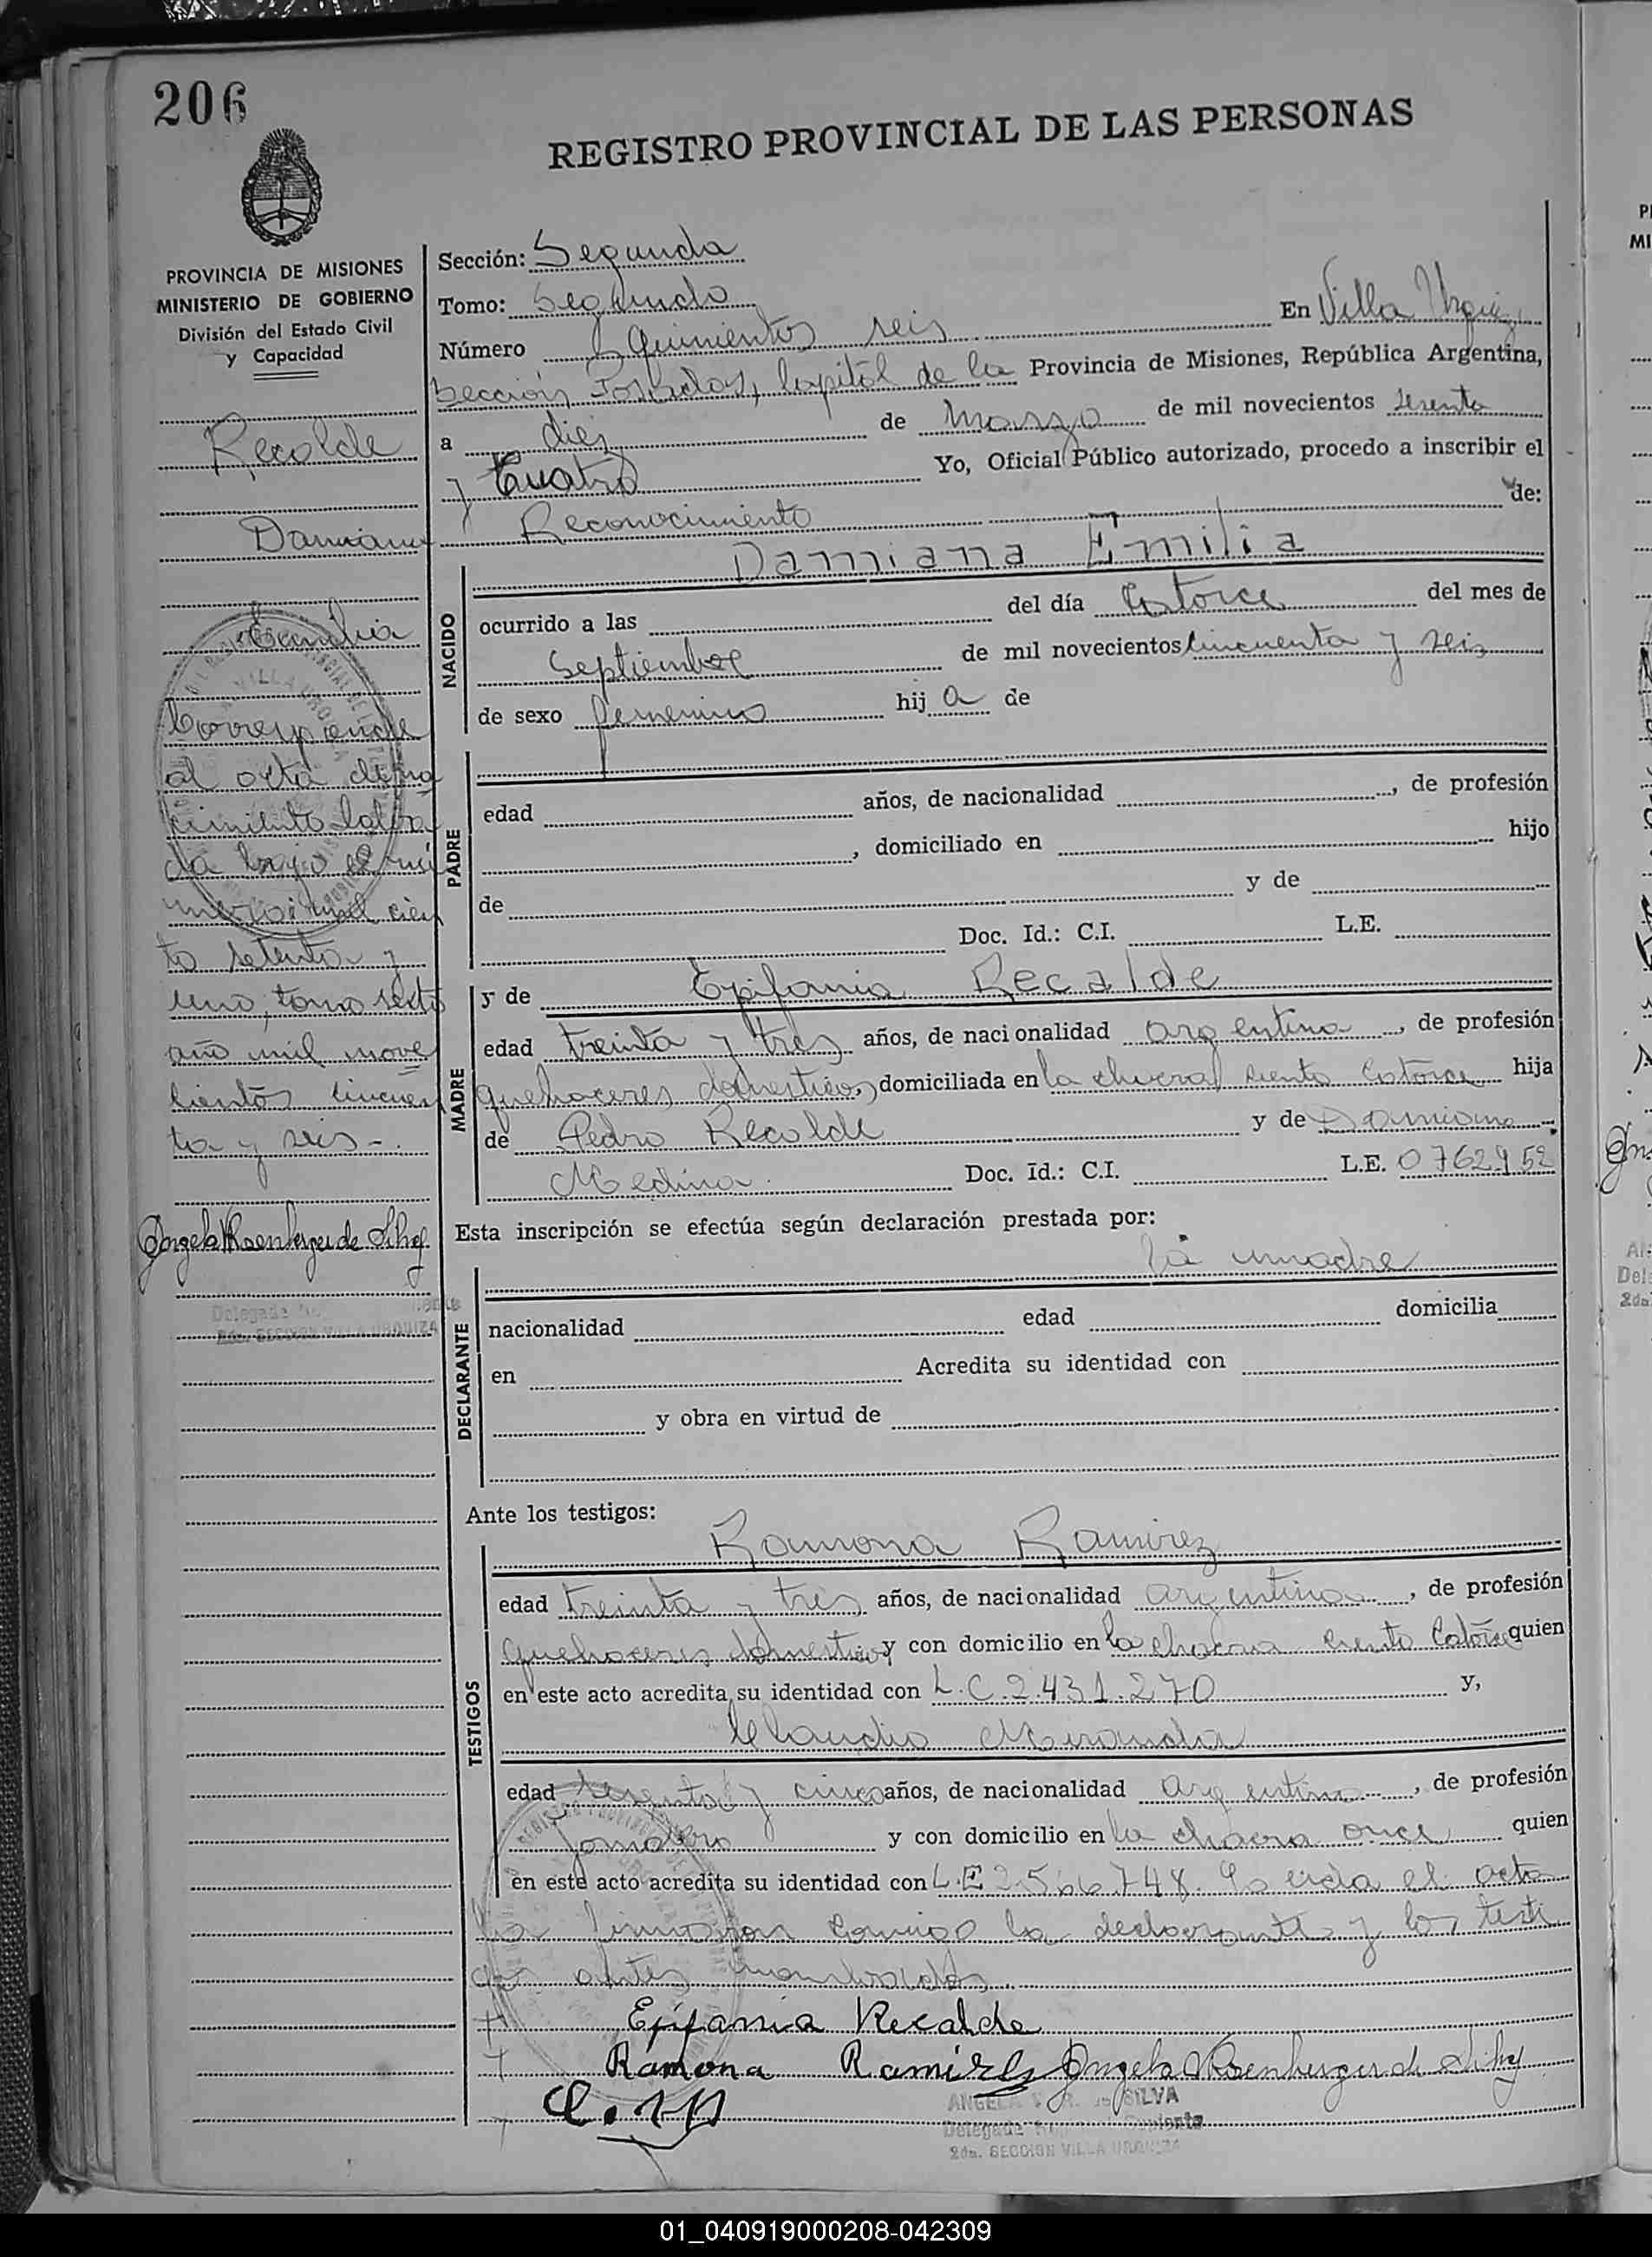 206
REGISTRO PROVINCIAL DE LAS PERSONAS
PROVINCIA DE MISIONES
MINISTERIO DE GOBIERNO
División del Estado Civil
y Capacidad
Recalde
Damiana
Emilia
Corresponde
al acta de na
cimiento labra
da bajo el nú
mero: mil cien
to setenta y
uno, tomo sexto
año mil nove
cientos cincuen
ta y seis -.
Angela V Rosenberger de Silva
Delegada
2da. SECCION VILLA URQUIZA
Sección: Segunda
Tomo: Segundo
Número quinientos seis En Villa Urquiza
Sección Posadas, Capital de la Provincia de Misiones, República Argentina,
a diez de Marzo de mil novecientos sesenta
y Cuatro Yo, Oficial Público autorizado, procedo a inscribir el
Reconocimiento de:
Damiana Emilia
NACIDO
ocurrido a las del día Catorce del mes de
Septiembre de mil novecientos cincuenta y seis
de sexo femenino hij a de
PADRE
edad años, de nacionalidad , de profesión
, domiciliado en hijo
de y de
Doc. Id.: C.I. L.E.
MADRE
y de Epifania Recalde
edad treinta y tres años, de nacionalidad argentina , de profesión
quehaceres domésticos, domiciliada en la chacra ciento Catorce hija
de Pedro Recalde y de Damiana
Medina Doc. Id.: C.I. L.E. 0762952
Esta inscripción se efectúa según declaración prestada por:
la madre
DECLARANTE
nacionalidad edad domicilia
en Acredita su identidad con
y obra en virtud de
Ante los testigos:
TESTIGOS
Ramona Ramirez
edad treinta y tres años, de nacionalidad argentina , de profesión
quehaceres domesticos y con domicilio en la chacra ciento Catorce quien
en este acto acredita su identidad con L.C.2.431.270 y,
Claudio Miranda
edad sesenta y cinco años, de nacionalidad argentina , de profesión
Jornalero y con domicilio en la chacra once quien
en este acto acredita su identidad con L.E 2.566.748. Leida el acta
la firman conmigo la declarante y los testi
gos antes nombrados.
Epifania Recalde
Ramona Ramires Angela V Rosenberger de Silva
C. M
ANGELA V. R. de SILVA
Delegada
2da. SECCION VILLA URQUIZA
01_040919000208-042309